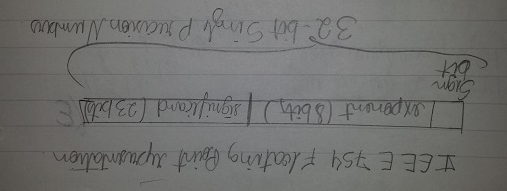 IEEE 754 Floating Point representation
exponent (8 bits) significand (23 bits)
Sign
bit
32-bit Single Precision Numbers